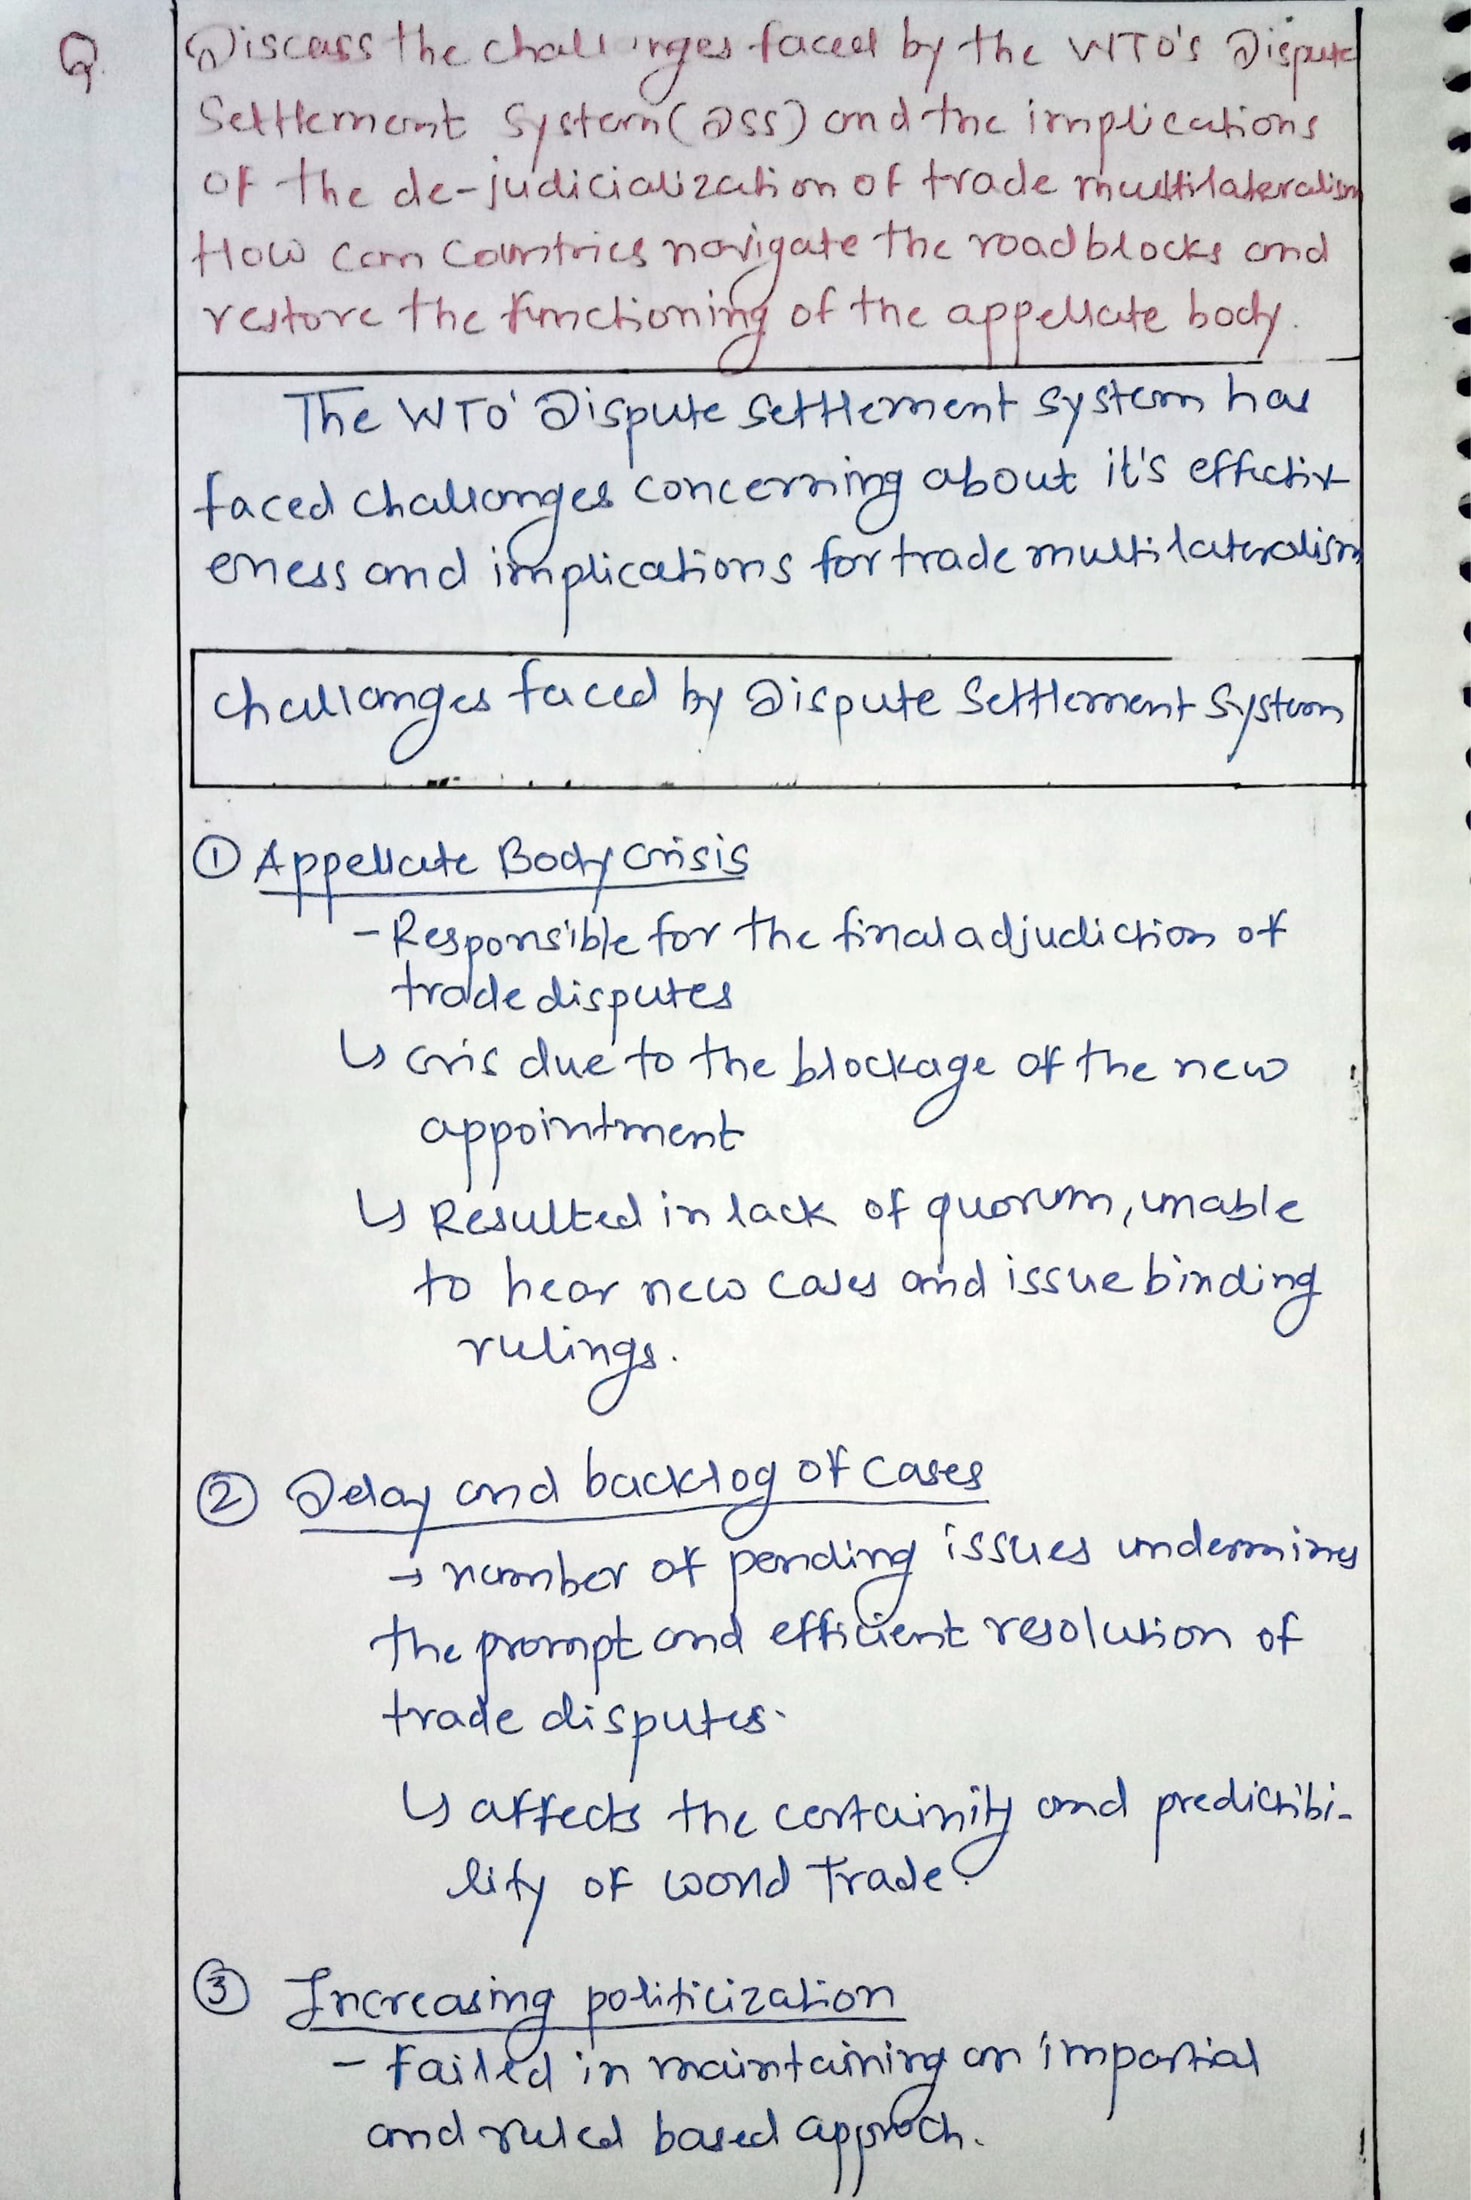 Q. Discuss the challenges faced by the WTO's Dispute
Settlement System (DSS) and the implications
of the de-judicialization of trade multilateralism
How can Countries navigate the roadblocks and
restore the functioning of the appellate body.
The WTO' Dispute settlement system has
faced challanges concerning about it's effectiv
eness and implications for trade multilateralism
Challanges faced by Dispute Settlement System
① Appellate Body crisis
- Responsible for the final adjudiction of
trade disputes
↳ cris due to the blockage of the new
appointment
↳ Resulted in lack of quorum, unable
to hear new cases and issue binding
rulings.
② Delay and backlog of cases
→ number of pending issues undermines
the prompt and efficient resolution of
trade disputes.
↳ affects the certainity and predictibi-
lity of world Trade.
③ Increasing politicization
- Failed in maintaining an impartial
and ruled based approch.